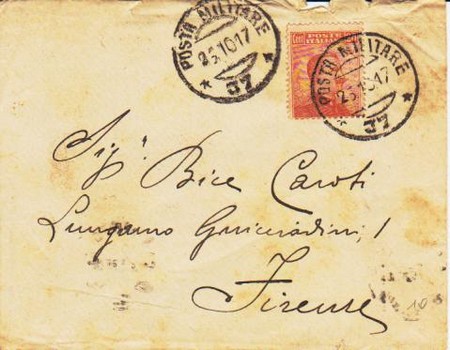 POSTA MILITARE
23.10.17
* 37 *
POSTE
ITALIANE
POSTA MILITARE
23.10.17
* 37 *
Sig.ª Bice Caroti
Lungarno Guicciardini, 1
Firenze
10